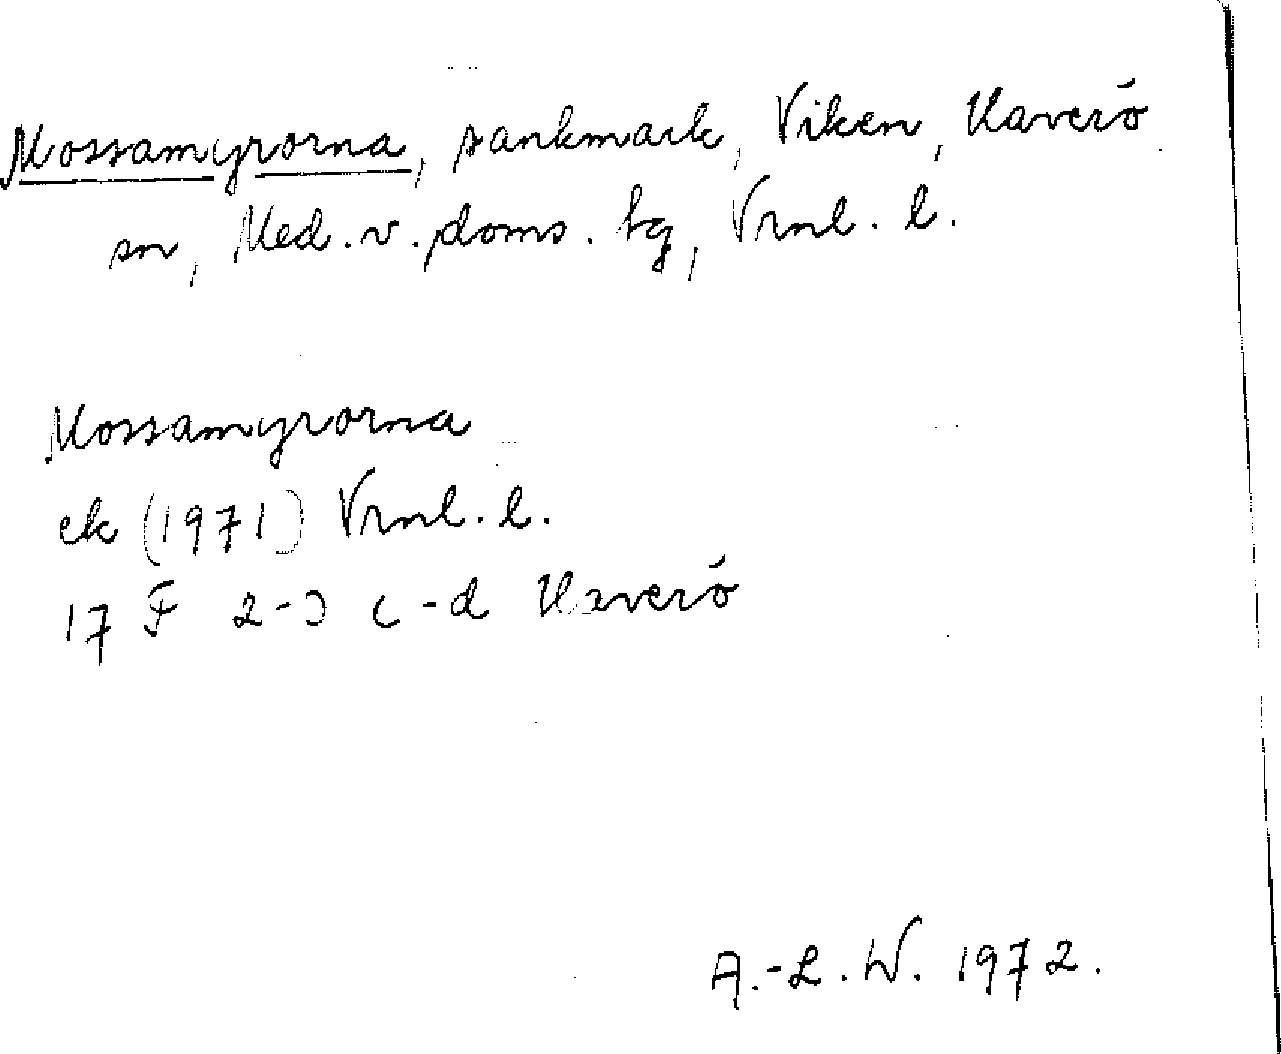 Mossamyrorna, sankmark, Viken, Haverö
sn, Med.v.doms. tg, Vrnl. l.
Mossamyrorna
ek (1971) Vrnl. l.
17 F 2-3 c-d Haverö
A.-L.W. 1972.